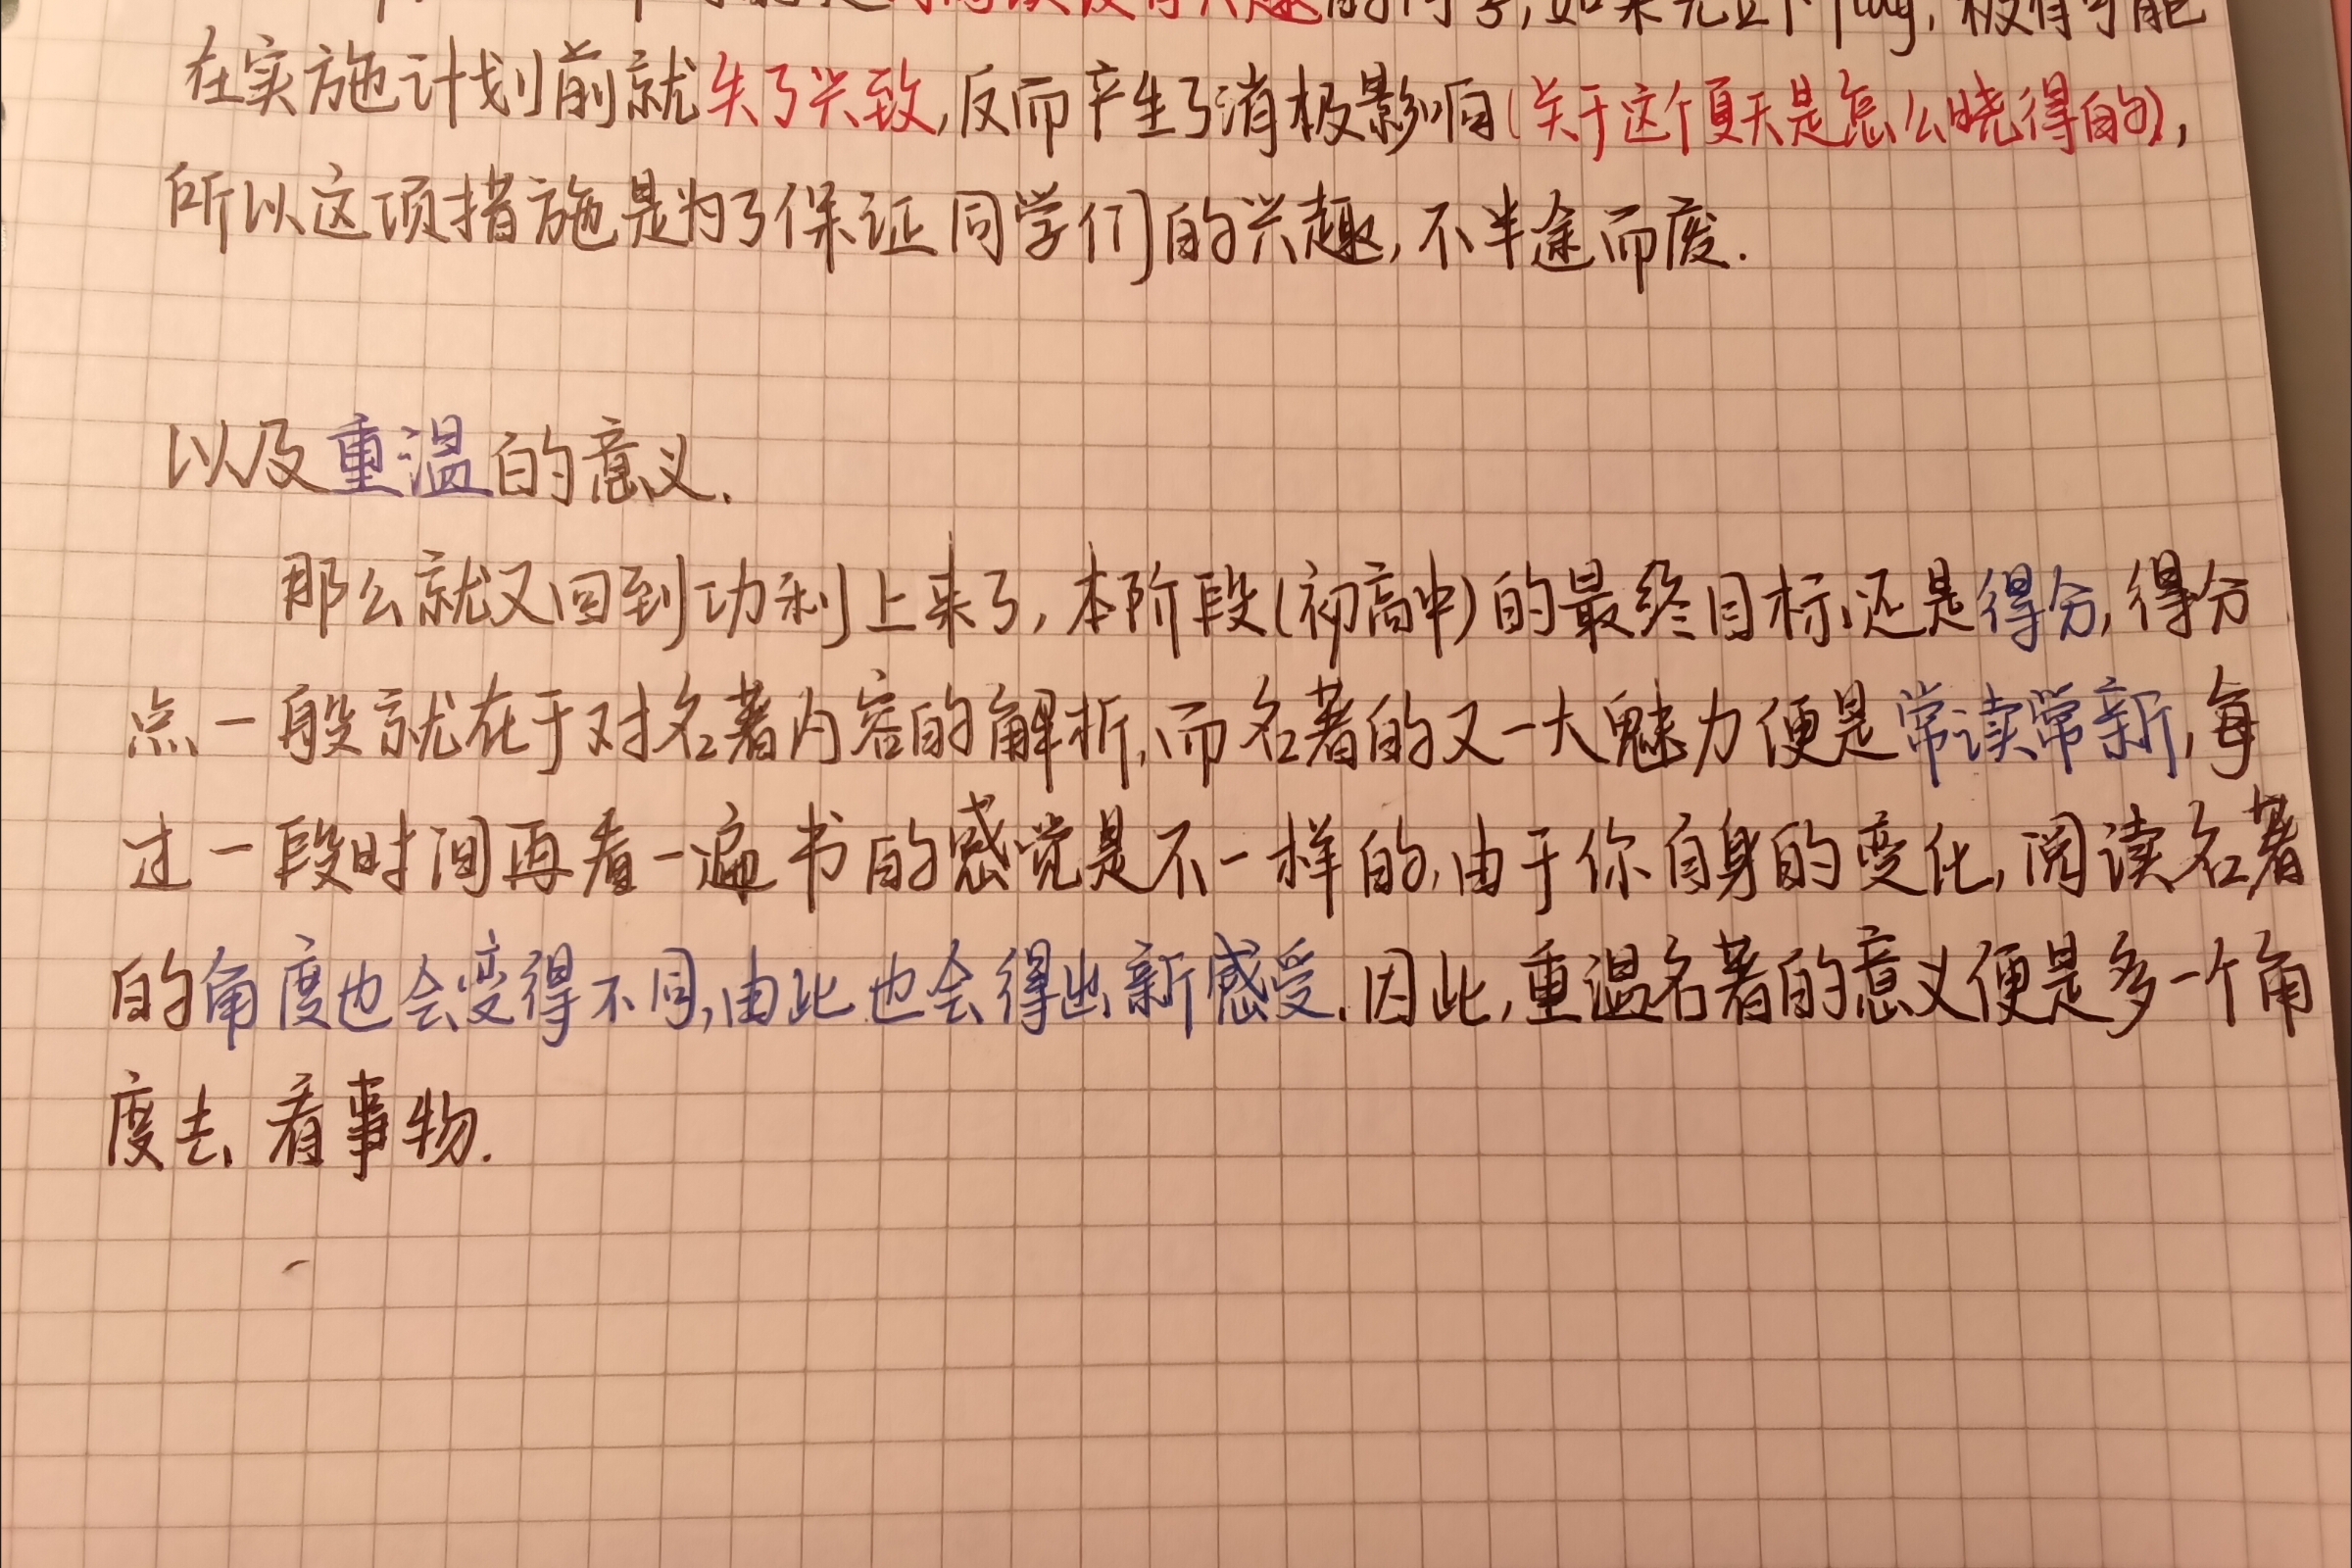 对阅读没有兴趣的同学,如果先立下flag,极有可能
在实施计划前就失了兴致,反而产生了消极影响(关于这个夏天是怎么晓得的),
所以这项措施是为了保证同学们的兴趣,不半途而废.
以及重温的意义.
那么就又回到功利上来了,本阶段(初高中)的最终目标还是得分,得分
点一般就在于对名著内容的解析,而名著的又一大魅力便是常读常新,每
过一段时间再看一遍书的感觉是不一样的,由于你自身的变化,阅读名著
的角度也会变得不同,由此也会得出新感受.因此,重温名著的意义便是多一个角
度去看事物.